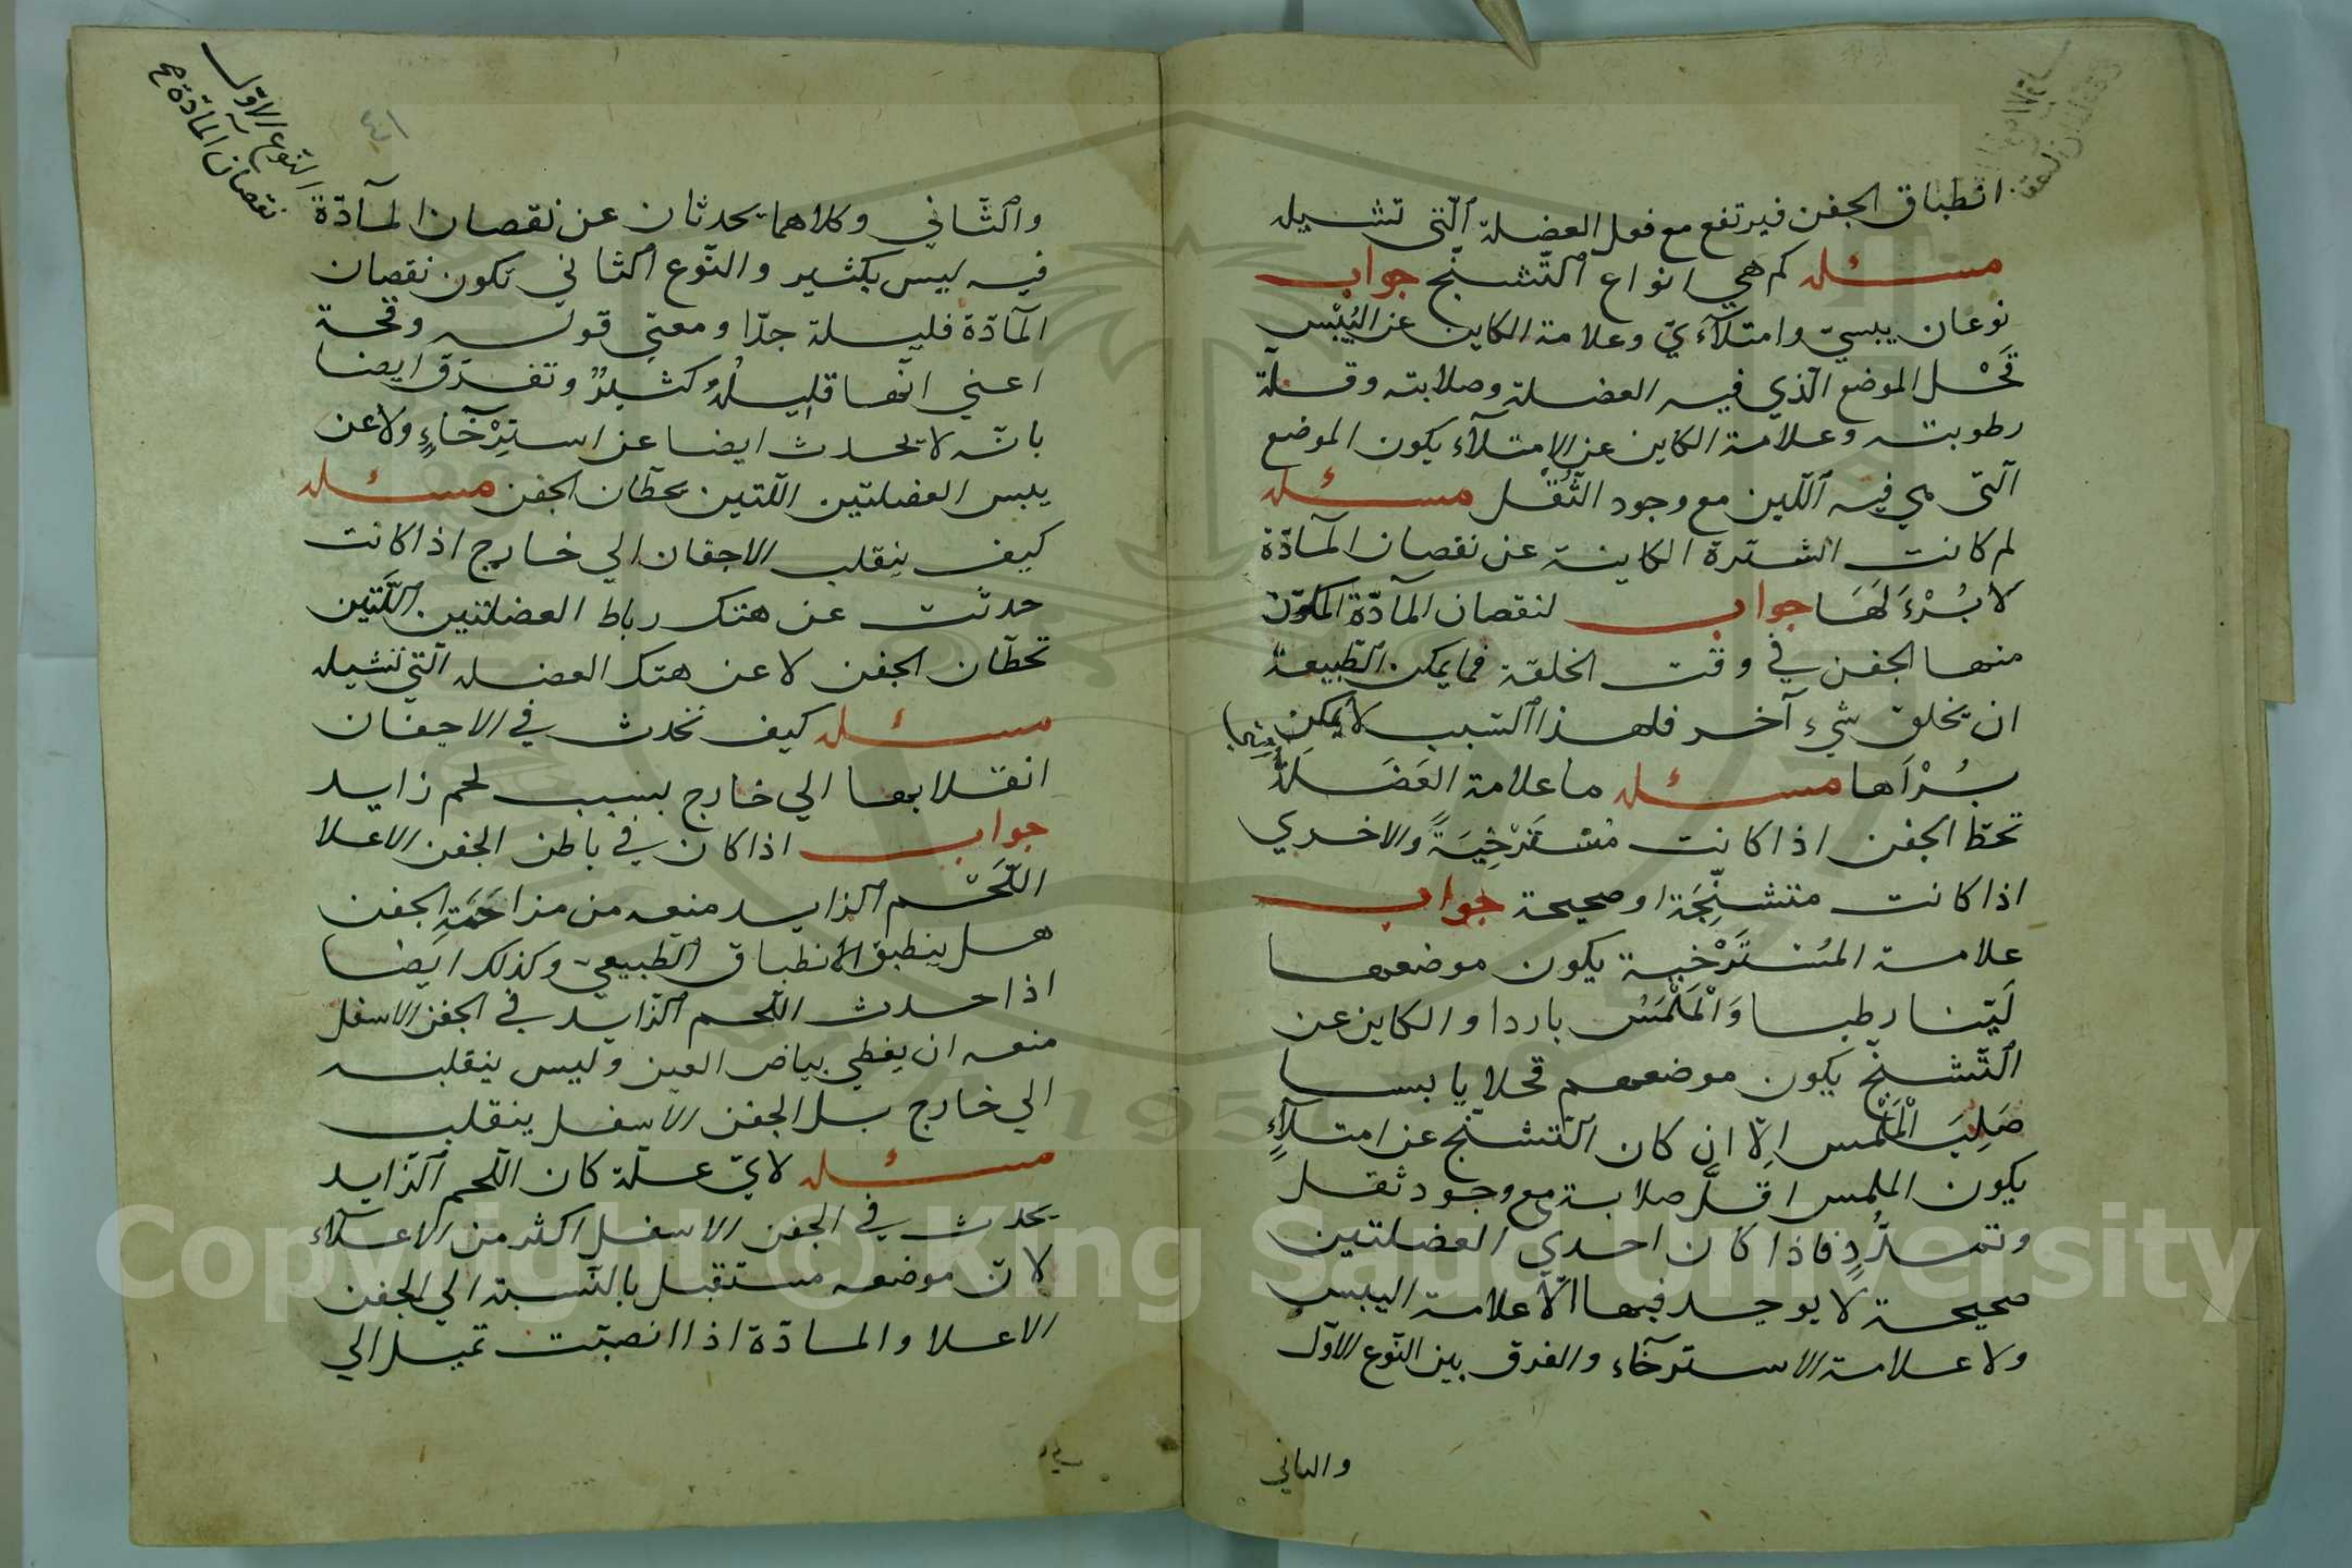 انطباق الجفن فيرتفع مع فعل العضلة الّتى تشيله
مسئله كم هي انواع التّشنّج جواب
نوعان يبسيّ وامتلآءيّ وعلامة الكاين عن اليُبْس
قَحْل الموضع الّذي فيه العضلة وصلابته وقلّة
رطوبته وعلامة الكاين عن الامتلآء يكون الموضع
الّتى هي فيه اللّين مع وجود الثُّقْل مسئله
لم كانت الشترة الكاينة عن نقصان المآدّة
لا بُرْءَ لَهَا جواب لنقصان المآدّة المكوّن
منها الجفن في وقت الخلقة فما يمكن الطّبيعة
ان يخلق شيء آخر فلهذا السّبب لا يمكن
بُرْأها مسئله ما علامة العَضَلَة
تحطّ الجفن اذا كانت مُسْتَرْخِيَةً والاخري
اذا كانت متشنِّجَة او صحيحة جواب
علامة المُسْتَرْخية يكون موضعها
لَيّنا رطبا وَالْمَلْمَسُ باردا والكاين عن
التّشنّج يكون موضعهم قحلا يابسا
صَلِبَ الْمَلْمس اِلّا ان كان التّشنّج عن امتلآءٍ
يكون الملمس اقلّ صلابة مع وجود ثقل
وتمدُّدٍ فاذا كان احدي العضلتين
صحيحة لا يوجد فيها الّا علامة اليبس
ولا علامة الاسترخآء والفرق بين النّوع الاوّل
والثاني
النّوع الاوّل
نقصان المآدّة
٤١
والثّاني وكلاهما يحدثان عن نقصان المآدّة
فيه ليس بكثير والنّوع الثاني تكون نقصان
المآدّة قليلة جدّا ومعنى قوله وقحة
اعني انّها قليلةٌ وكثيرٌ وتفرّق ايضا
بانّه لا يحدث ايضا عن استِرْخآءٍ ولا عن
يبس العضلتين اللّتين يحطّان الجفن مسئله
كيف ينقلب الاجفان الي خارج اذا كانت
حدثت عن هتك رباط العضلتين اللّتين
تحطّان الجفن لا عن هتك العضله الّتي تشيله
مسئله كيف تحدث في الاجفان
انقلابها الي خارج بسبب لحم زايد
جواب اذا كان في باطن الجفن الاعلا
اللّحْم الزايد منعه من مزاحَمَةِ الجفن
هل ينطبق الانطباق الطّبيعي وكذلك ايضا
اذا حدث اللّحم الزّايد في الجفن الاسفل
منعه ان يغطي بياض العين وليس ينقلب
الي خارج بل الجفن الاسفل ينقلب
مسئله لايّ علّة كان اللّحم الزّايد
يحدث في الجفن الاسفل اكثر من الاعلاء
لانّ موضعه مستقبل بالنّسبة الي الجفن
الاعلا والمادّة اذا انصبّت تميل الي
Copyright © King Saud University
195